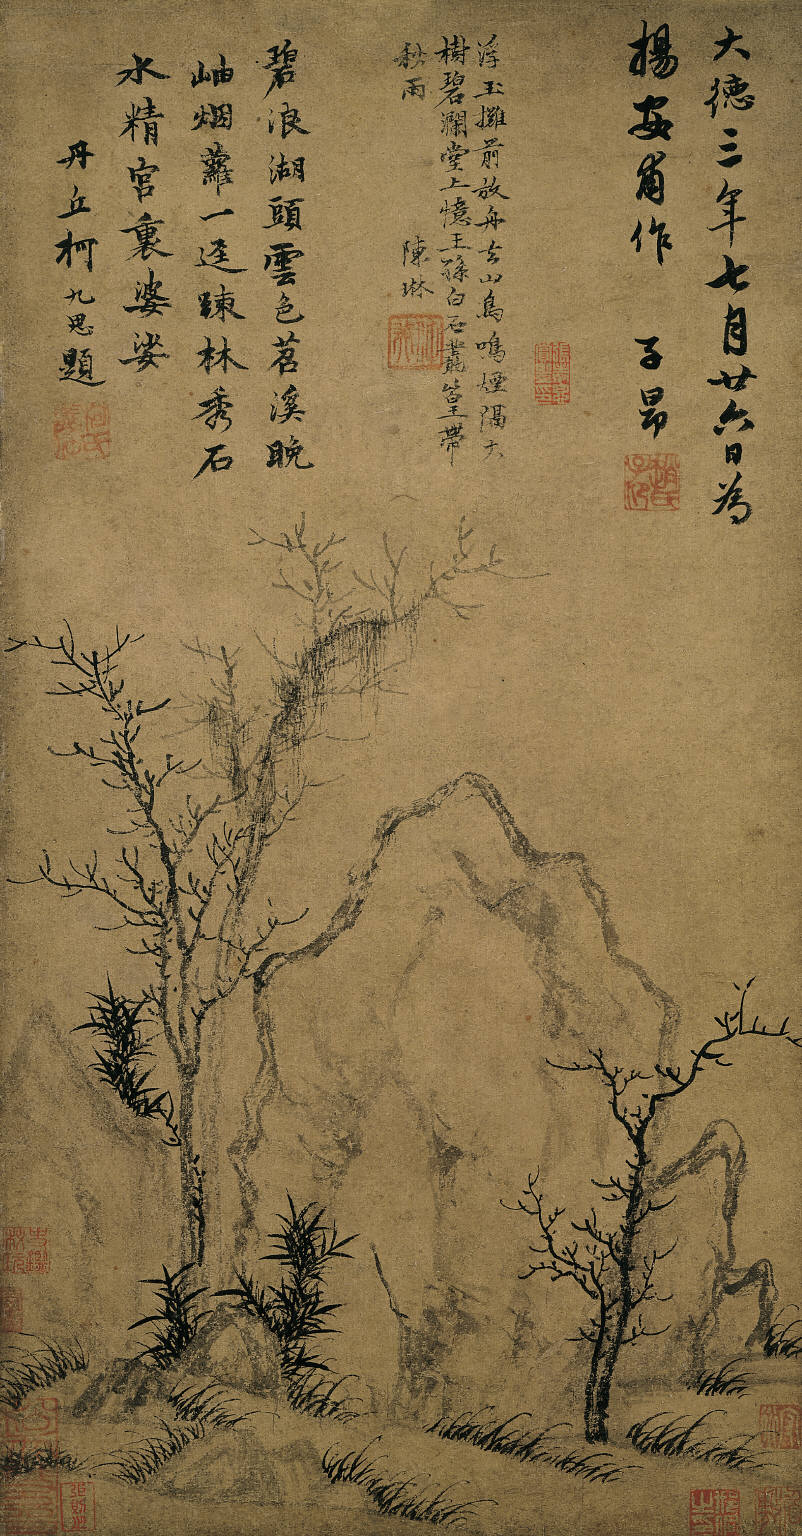 大德三年七月廿六日為
楊安甫作 子昂
浮玉灘前放舟去山鳥鳴煙隔大
樹碧瀾堂上憶王孫白石叢篁帶
秋雨 陳琳
碧浪湖頭雲色苕溪晚
岫烟蘿一逕踈林秀石
水精宮裏婆娑
丹丘柯九思題
趙氏子昂
柯氏敬仲